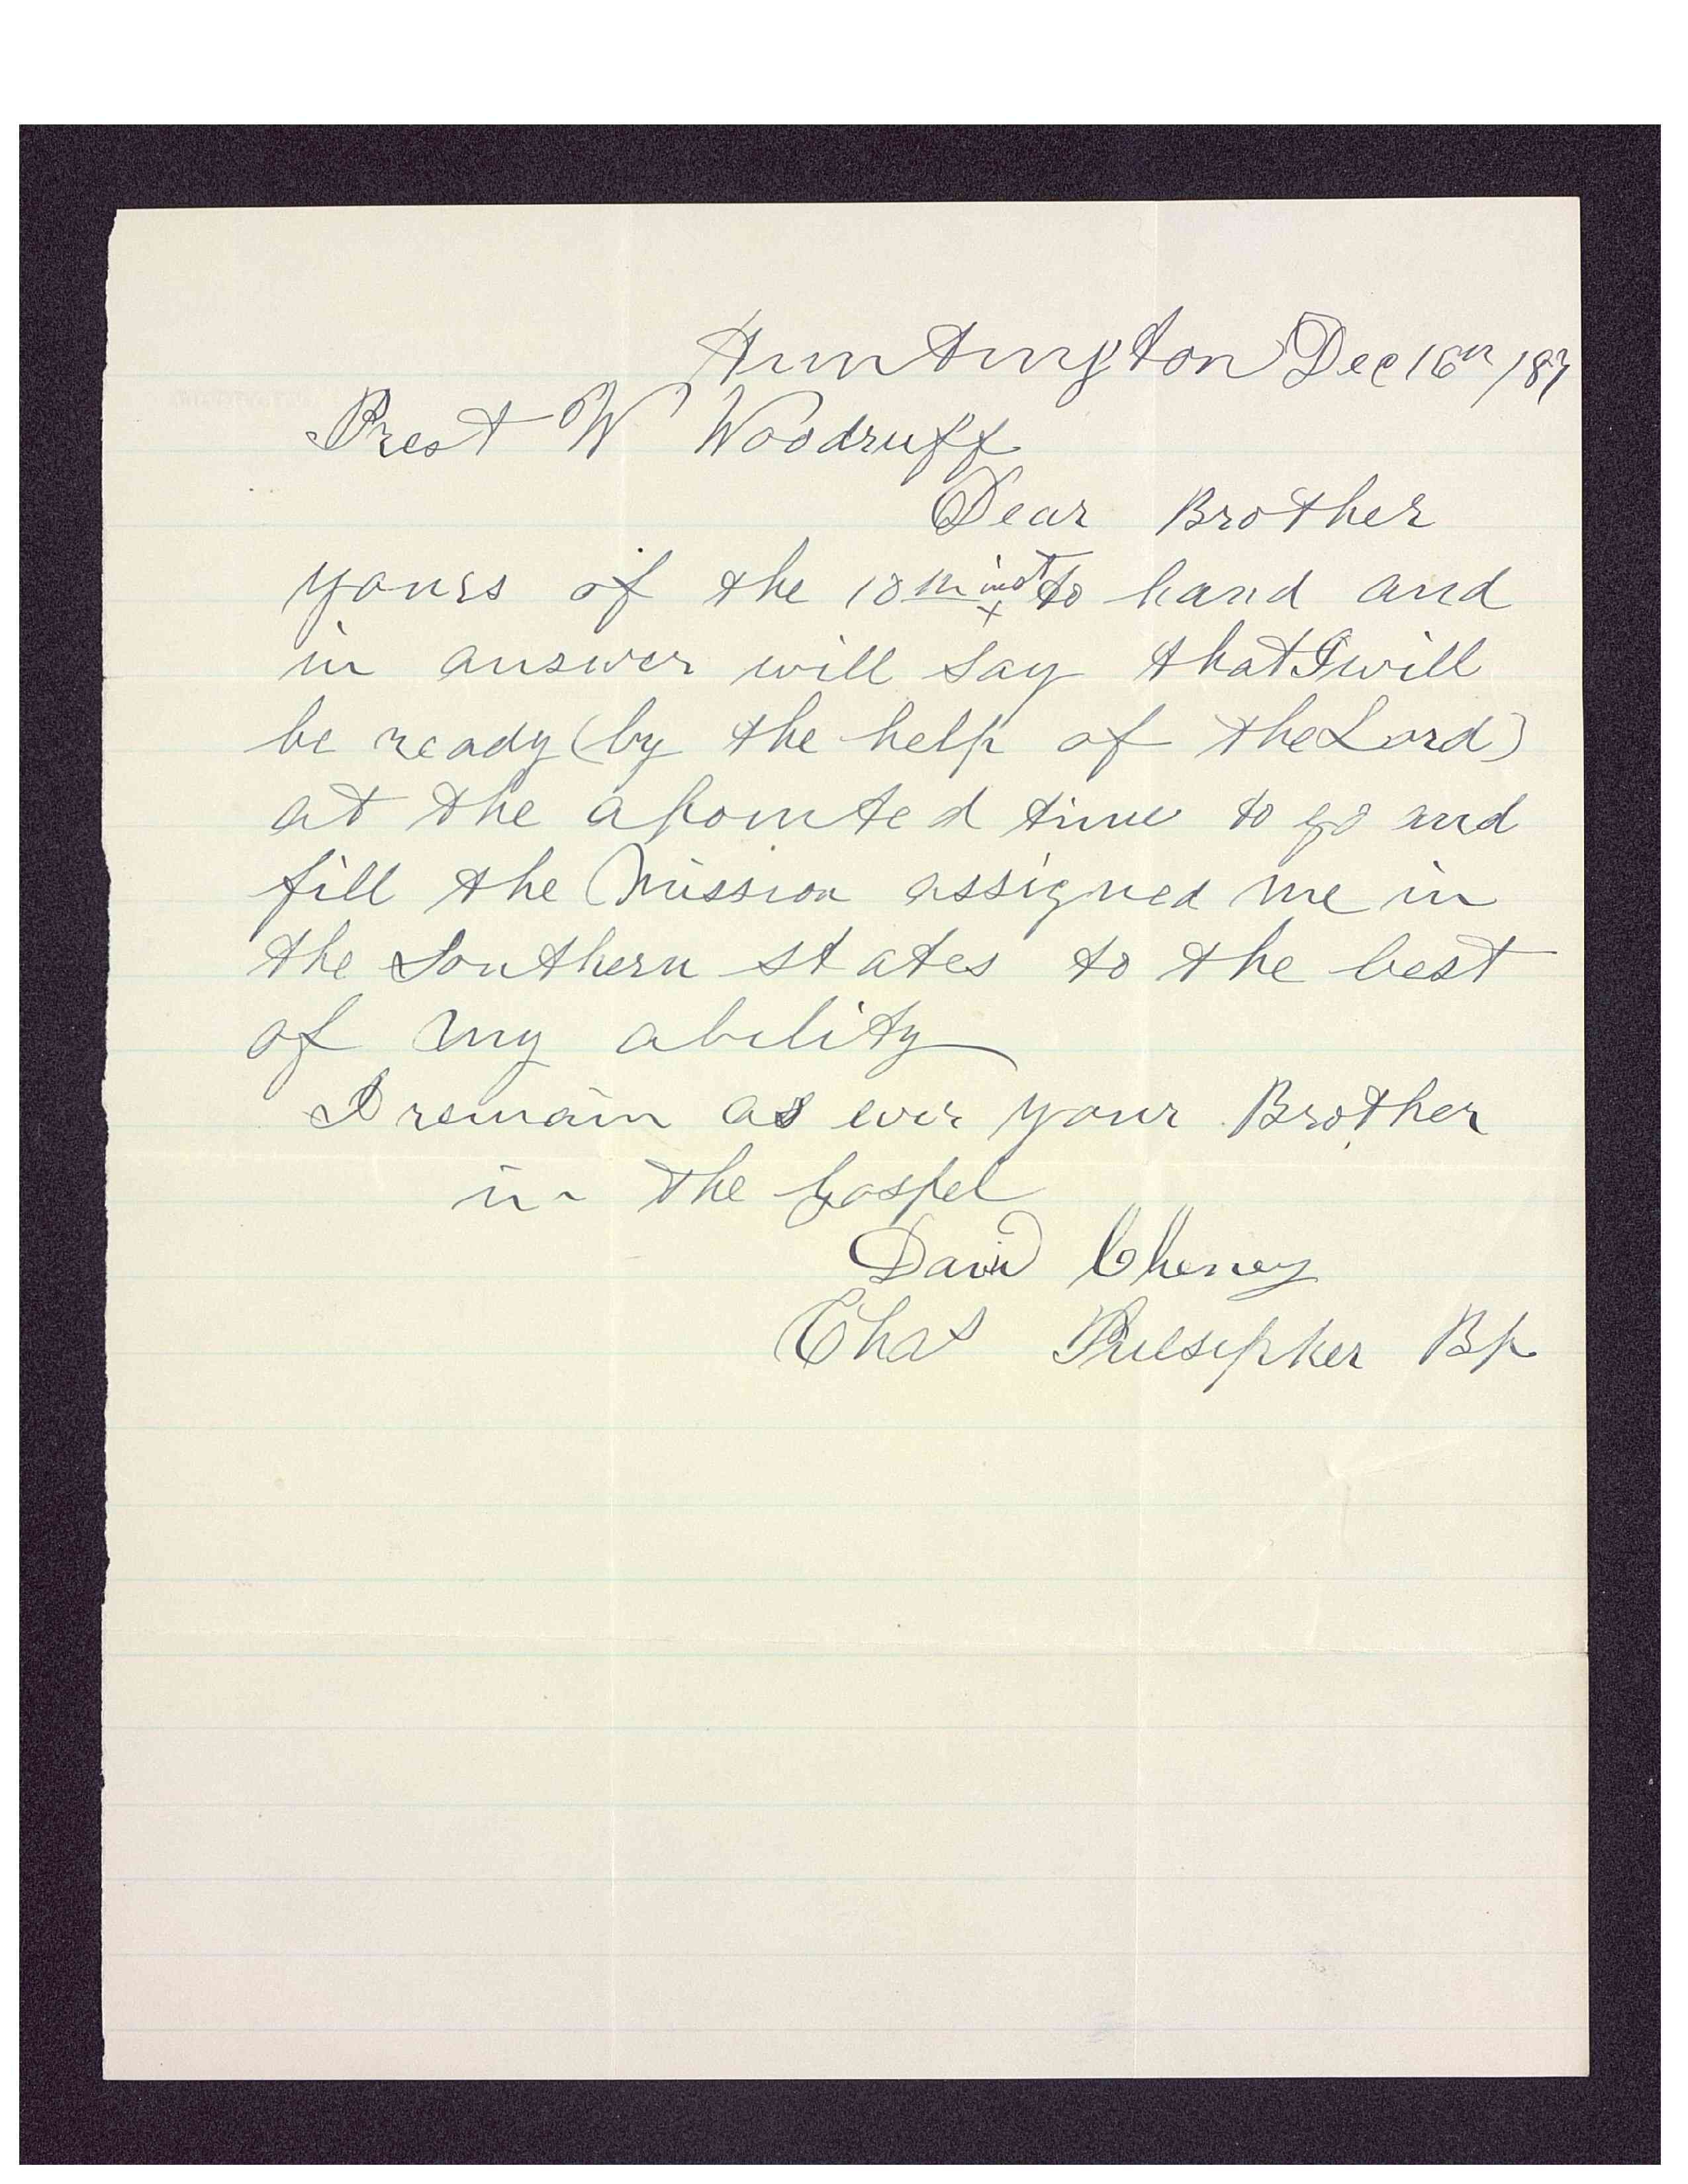 Huntington Dec 16th /89
Prest W Woodruff
Dear Brother
yours of the 10th inst to hand and
in answer will say that I will
be ready (by the help of the Lord)
at the apointed time to go and
fill the Mission assigned me in
the Southern states to the best
of my ability
I remain as ever your Brother
in the gospel
David Cheney
Chas Bp